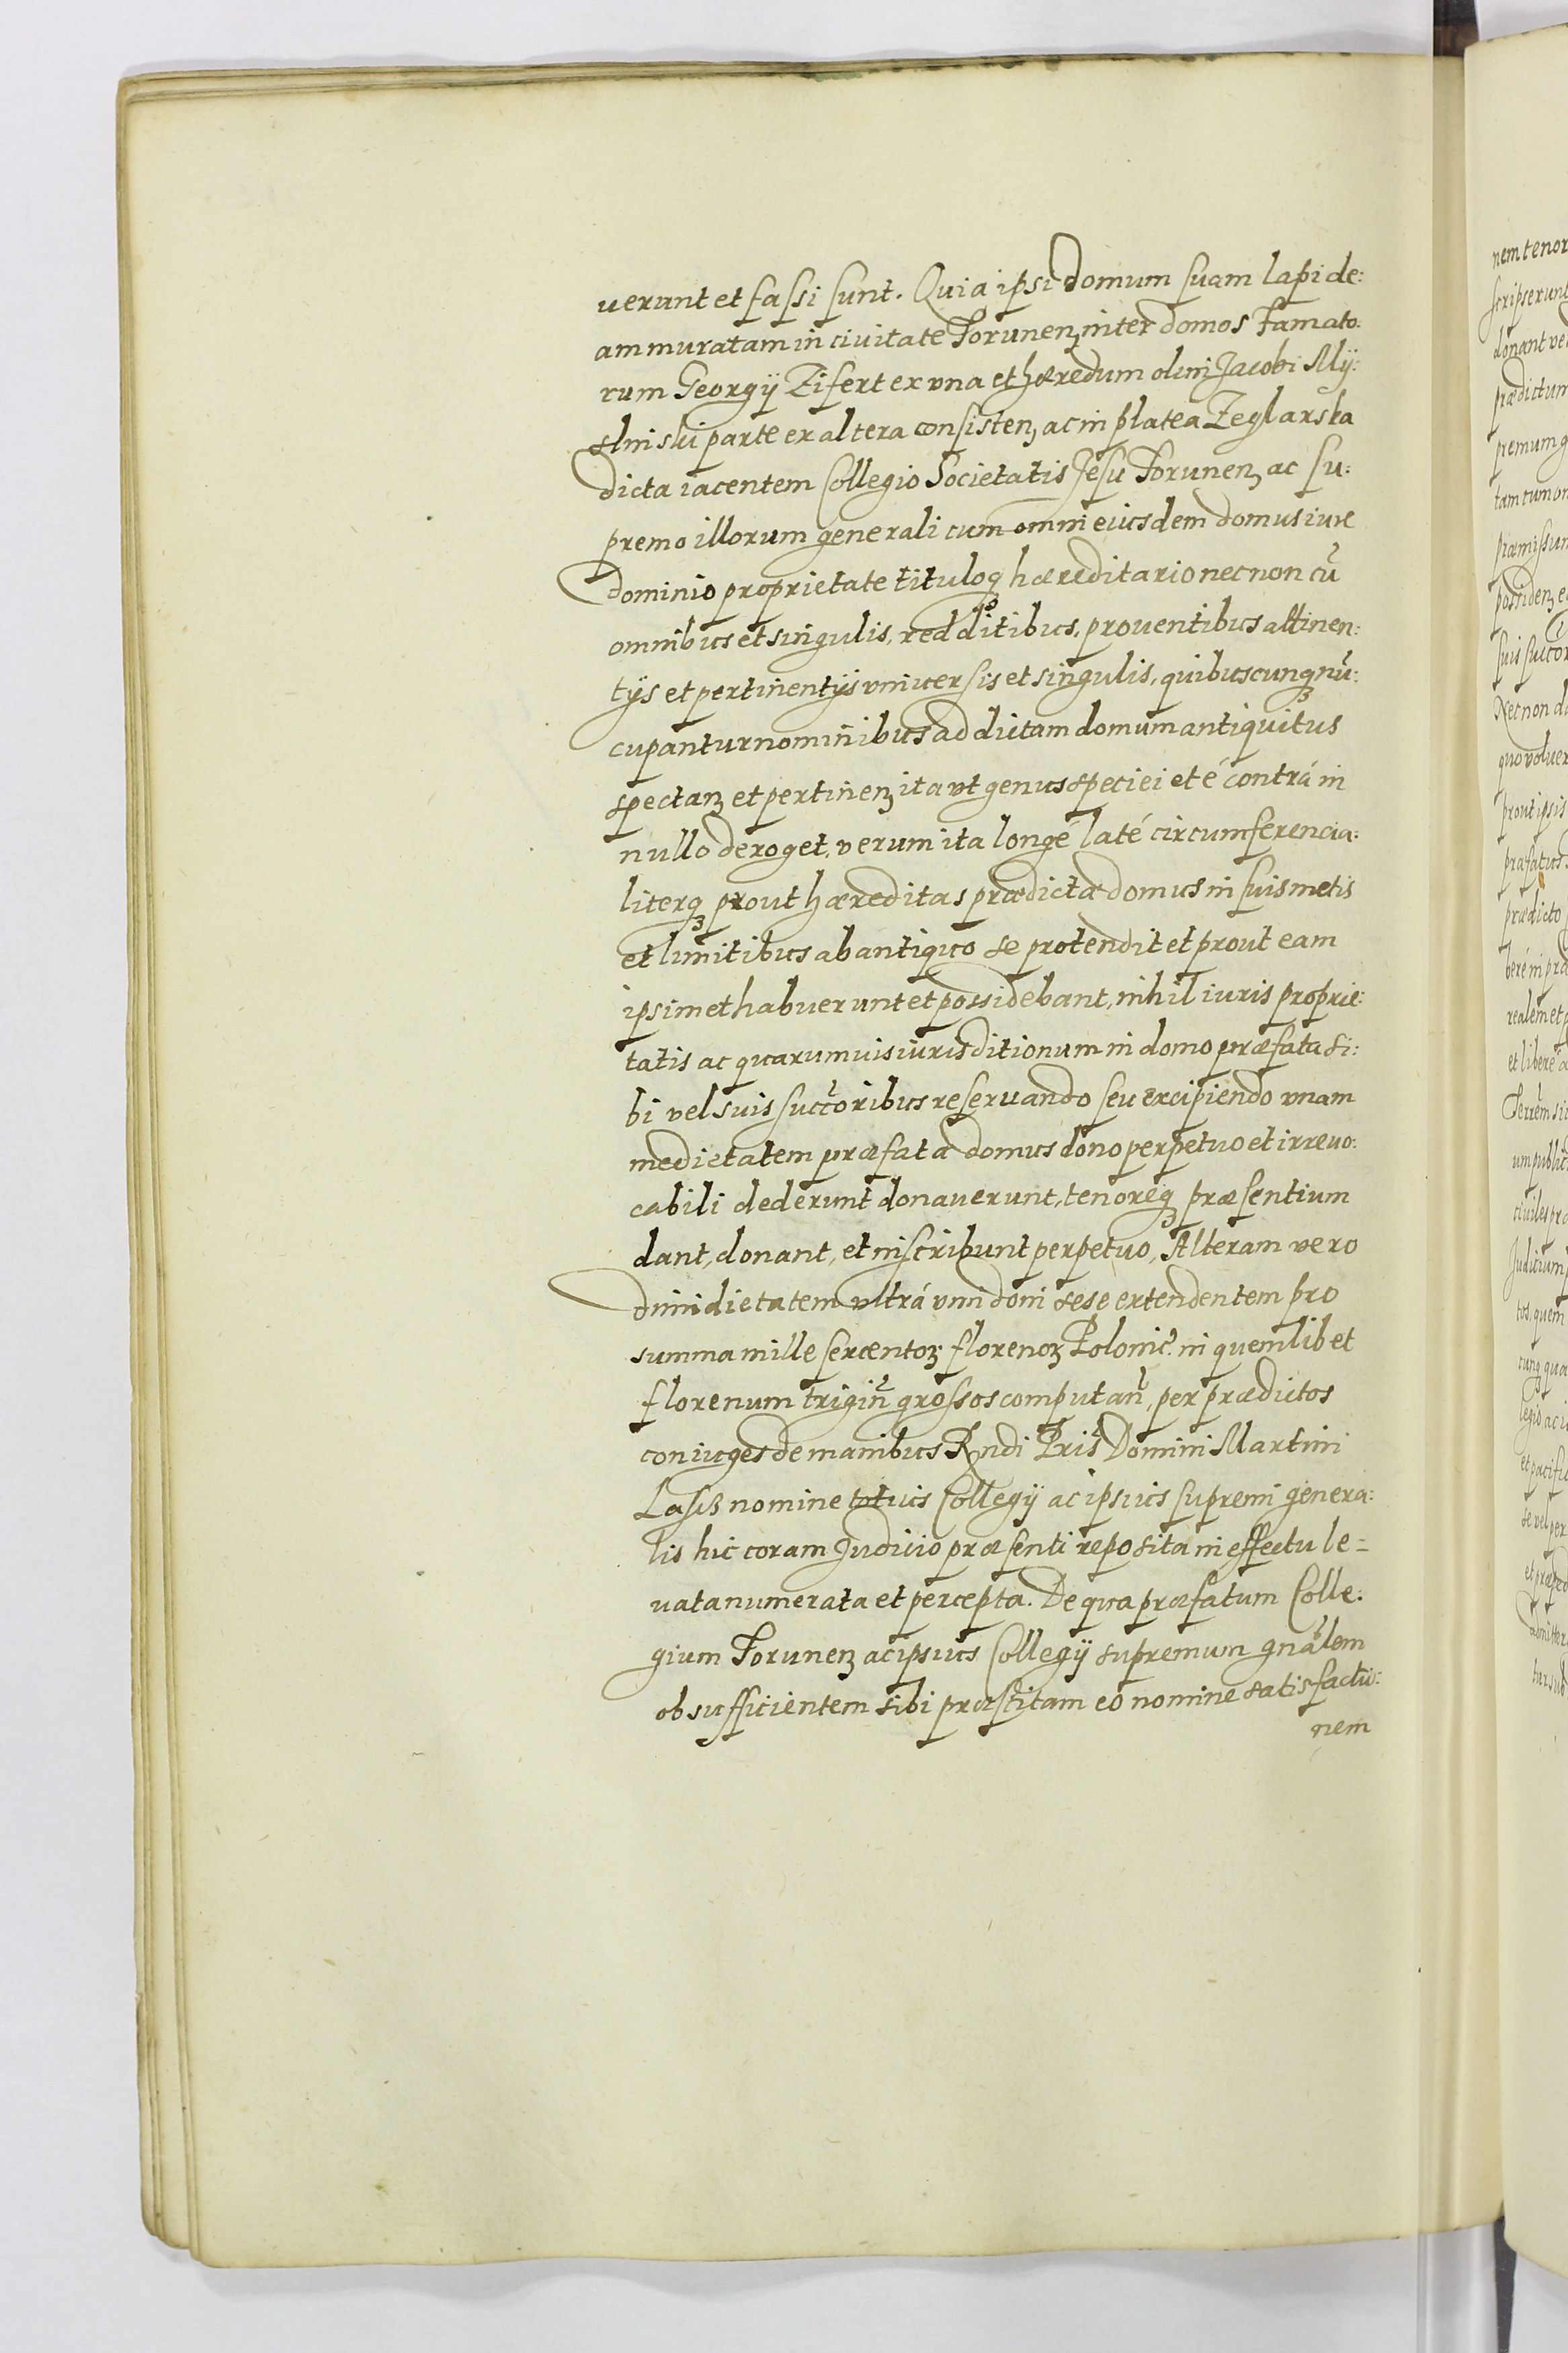 uerunt et fassi sunt. Quia ipsi domum suam lapide:
am muratam in ciuitate Torunenʒ inter domos Famato:
rum Georgÿ Zifert ex vna et hæredum olim Jacobi Mÿ:
slniski parte ex altera consistenʒ ac in platea Zeglarska
dicta iacentem Collegio Societatis Jesu Torunenʒ ac su:
premo illorum generali cum omni eiusdem domus iure
dominio proprietate tituloqʒ hæreditario necnon cũ
omnibus et singulis, redditibus, prouentibus attinen:
tÿs et pertinentÿs vniuersis et singulis, quibuscunqʒ nũ:
cupantur nominibus ad dictam domum antiquitus
spectanʒ et pertinenʒ ita vt genus speciei et é contrá in
nullo deroget, verum ita longé laté circumferencia:
literqʒ prout hæreditas prædictæ domus in suis metis
et limitibus ab antiquo se protendit et prout eam
ipsimet habuerunt et possidebant, nihil iuris proprie:
tatis ac quarumuis iurisditionum in domo præfata si:
bi vel suis succ̃oribus reseruando seu excipiendo vnam
medietatem præfatæ domus dono perpetuo et irreuo:
cabili dederunt donauerunt, tenoreqʒ præsentium
dant, donant, et inscribunt perpetuo, Alteram vero
dimidietatem vltrá vim doni sese extendentem pro
summa mille sexcentoʒ florenoʒ Polonic̃. in quemlibet
florenum trigin̄ grossos computan̄, per prædictos
coniuges de manibus Rndi Pris Domini Martini
Lasch nomine totius Collegÿ ac ipsius supremi genera:
lis hic coram Judicio præsenti reposita in effectu le=
uata numerata et percepta. De qua præfatum Colle:
gium Torunenʒ ac ipsius Collegÿ supremum gnãlem
ob sufficientem sibi præstitam eo nomine satisfactio:
nem
nem tenor
scripserunt
donant ve
prædictum
premum g
præmissum
possidenʒ e
suis succor
Necnon d
quo voluer
prout ipsis
præfatus
prædicto
realem et p
et liberé a
um public
Judicium
et pacific
se vel per